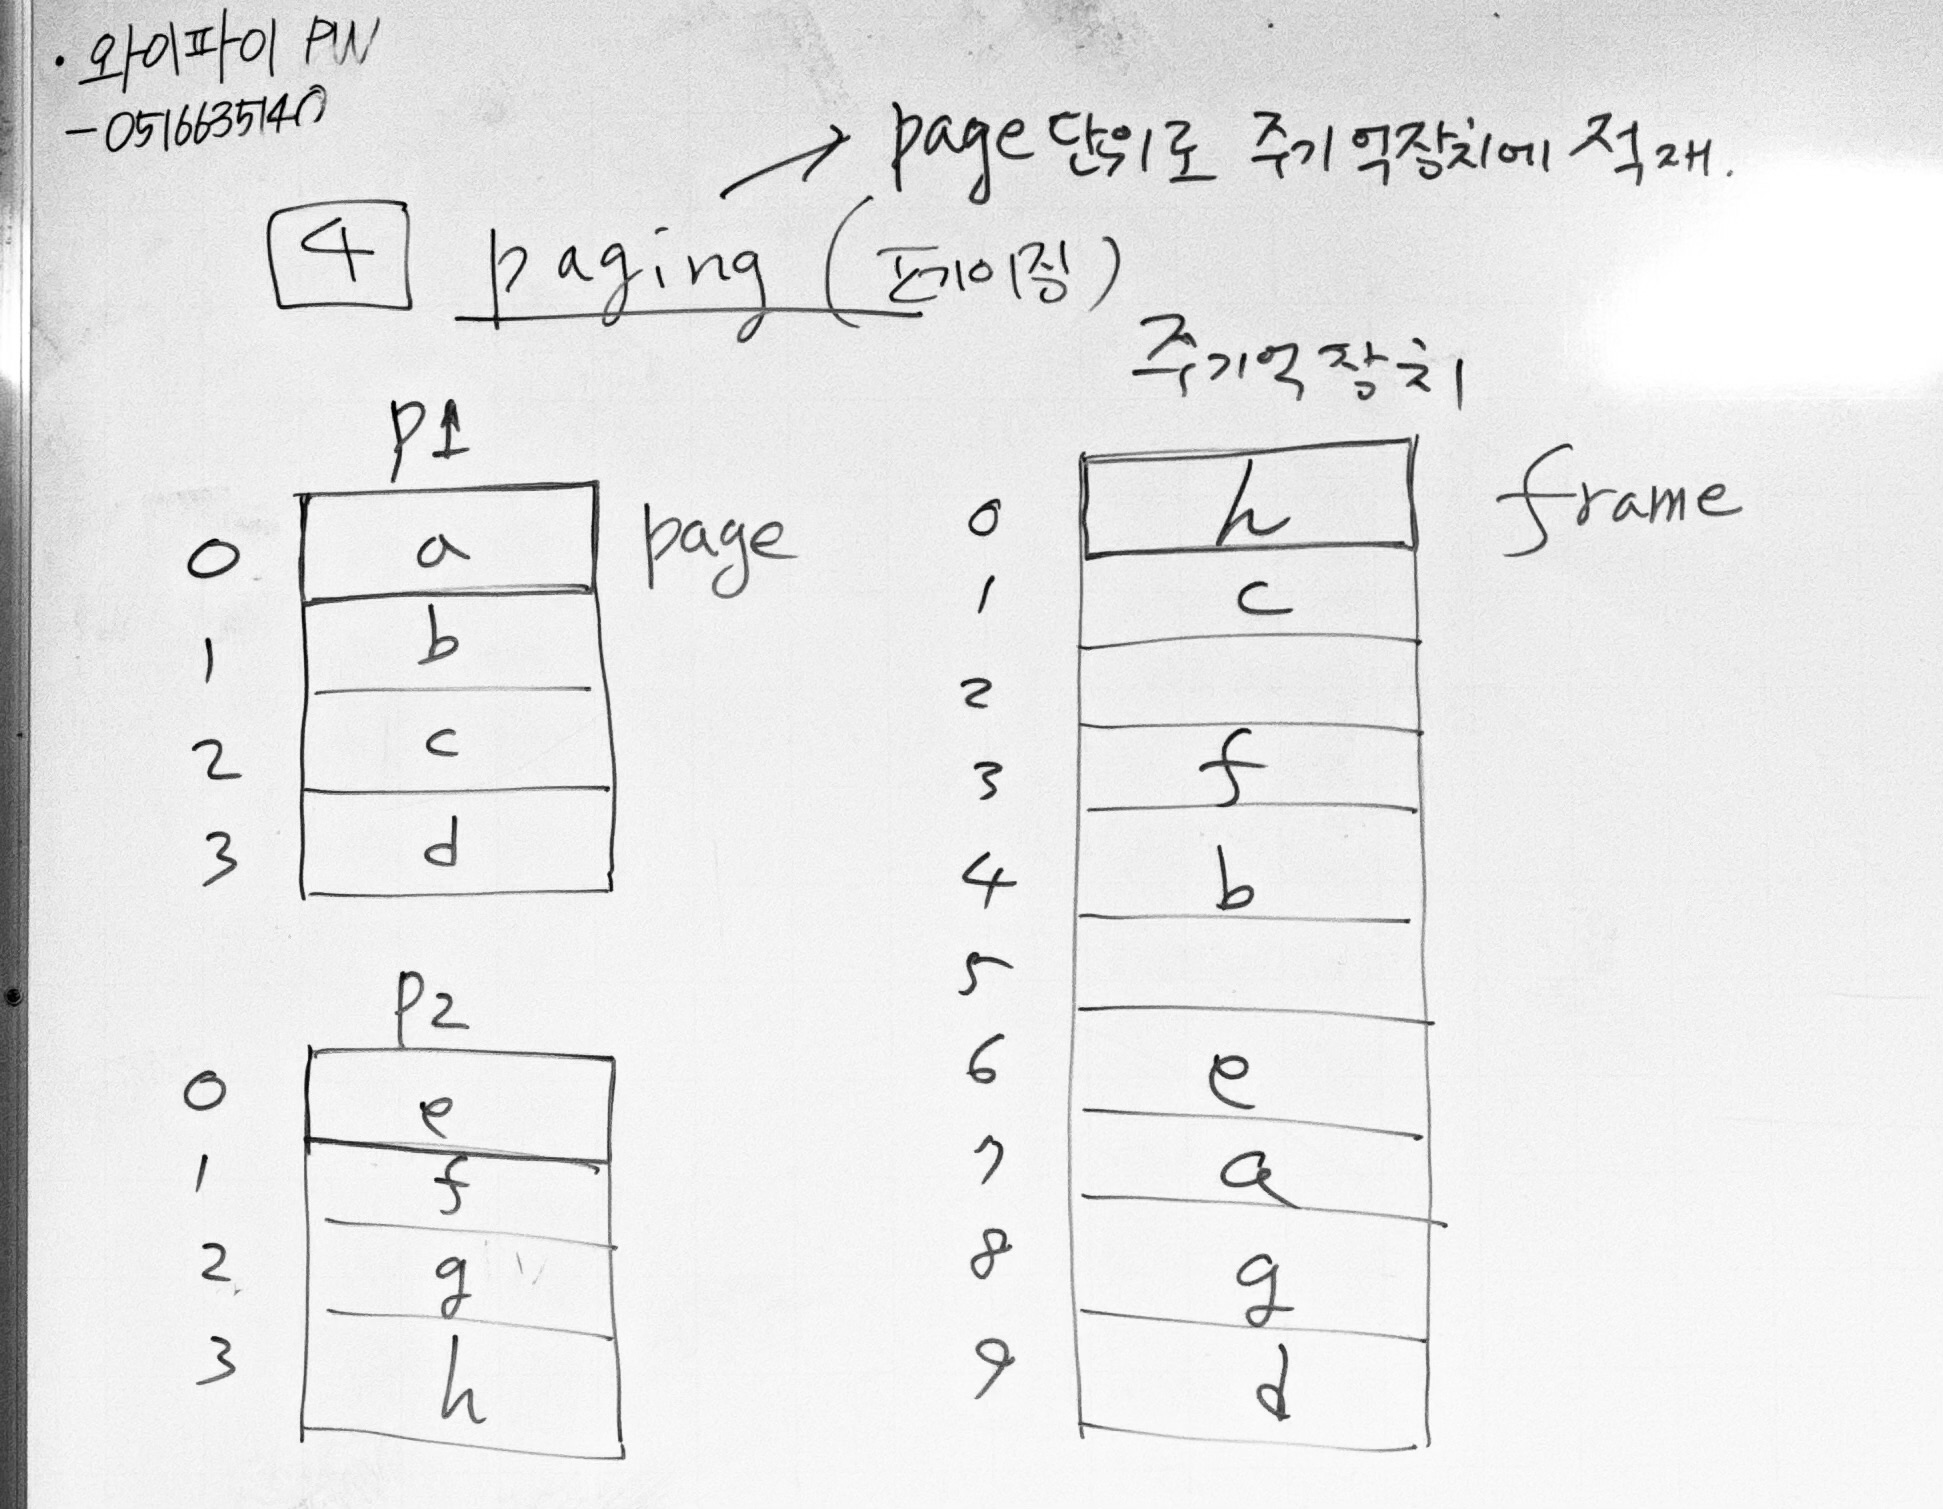 · 와이파이 PW
- 0516635140
→ page 단위로 주기억장치에 적재.
4 paging (페이징)
주기억장치
P1
0 a page
1 b
2 c
3 d
P2
0 e
1 f
2 g
3 h
0 h frame
1 c
2
3 f
4 b
5
6 e
7 a
8 g
9 d